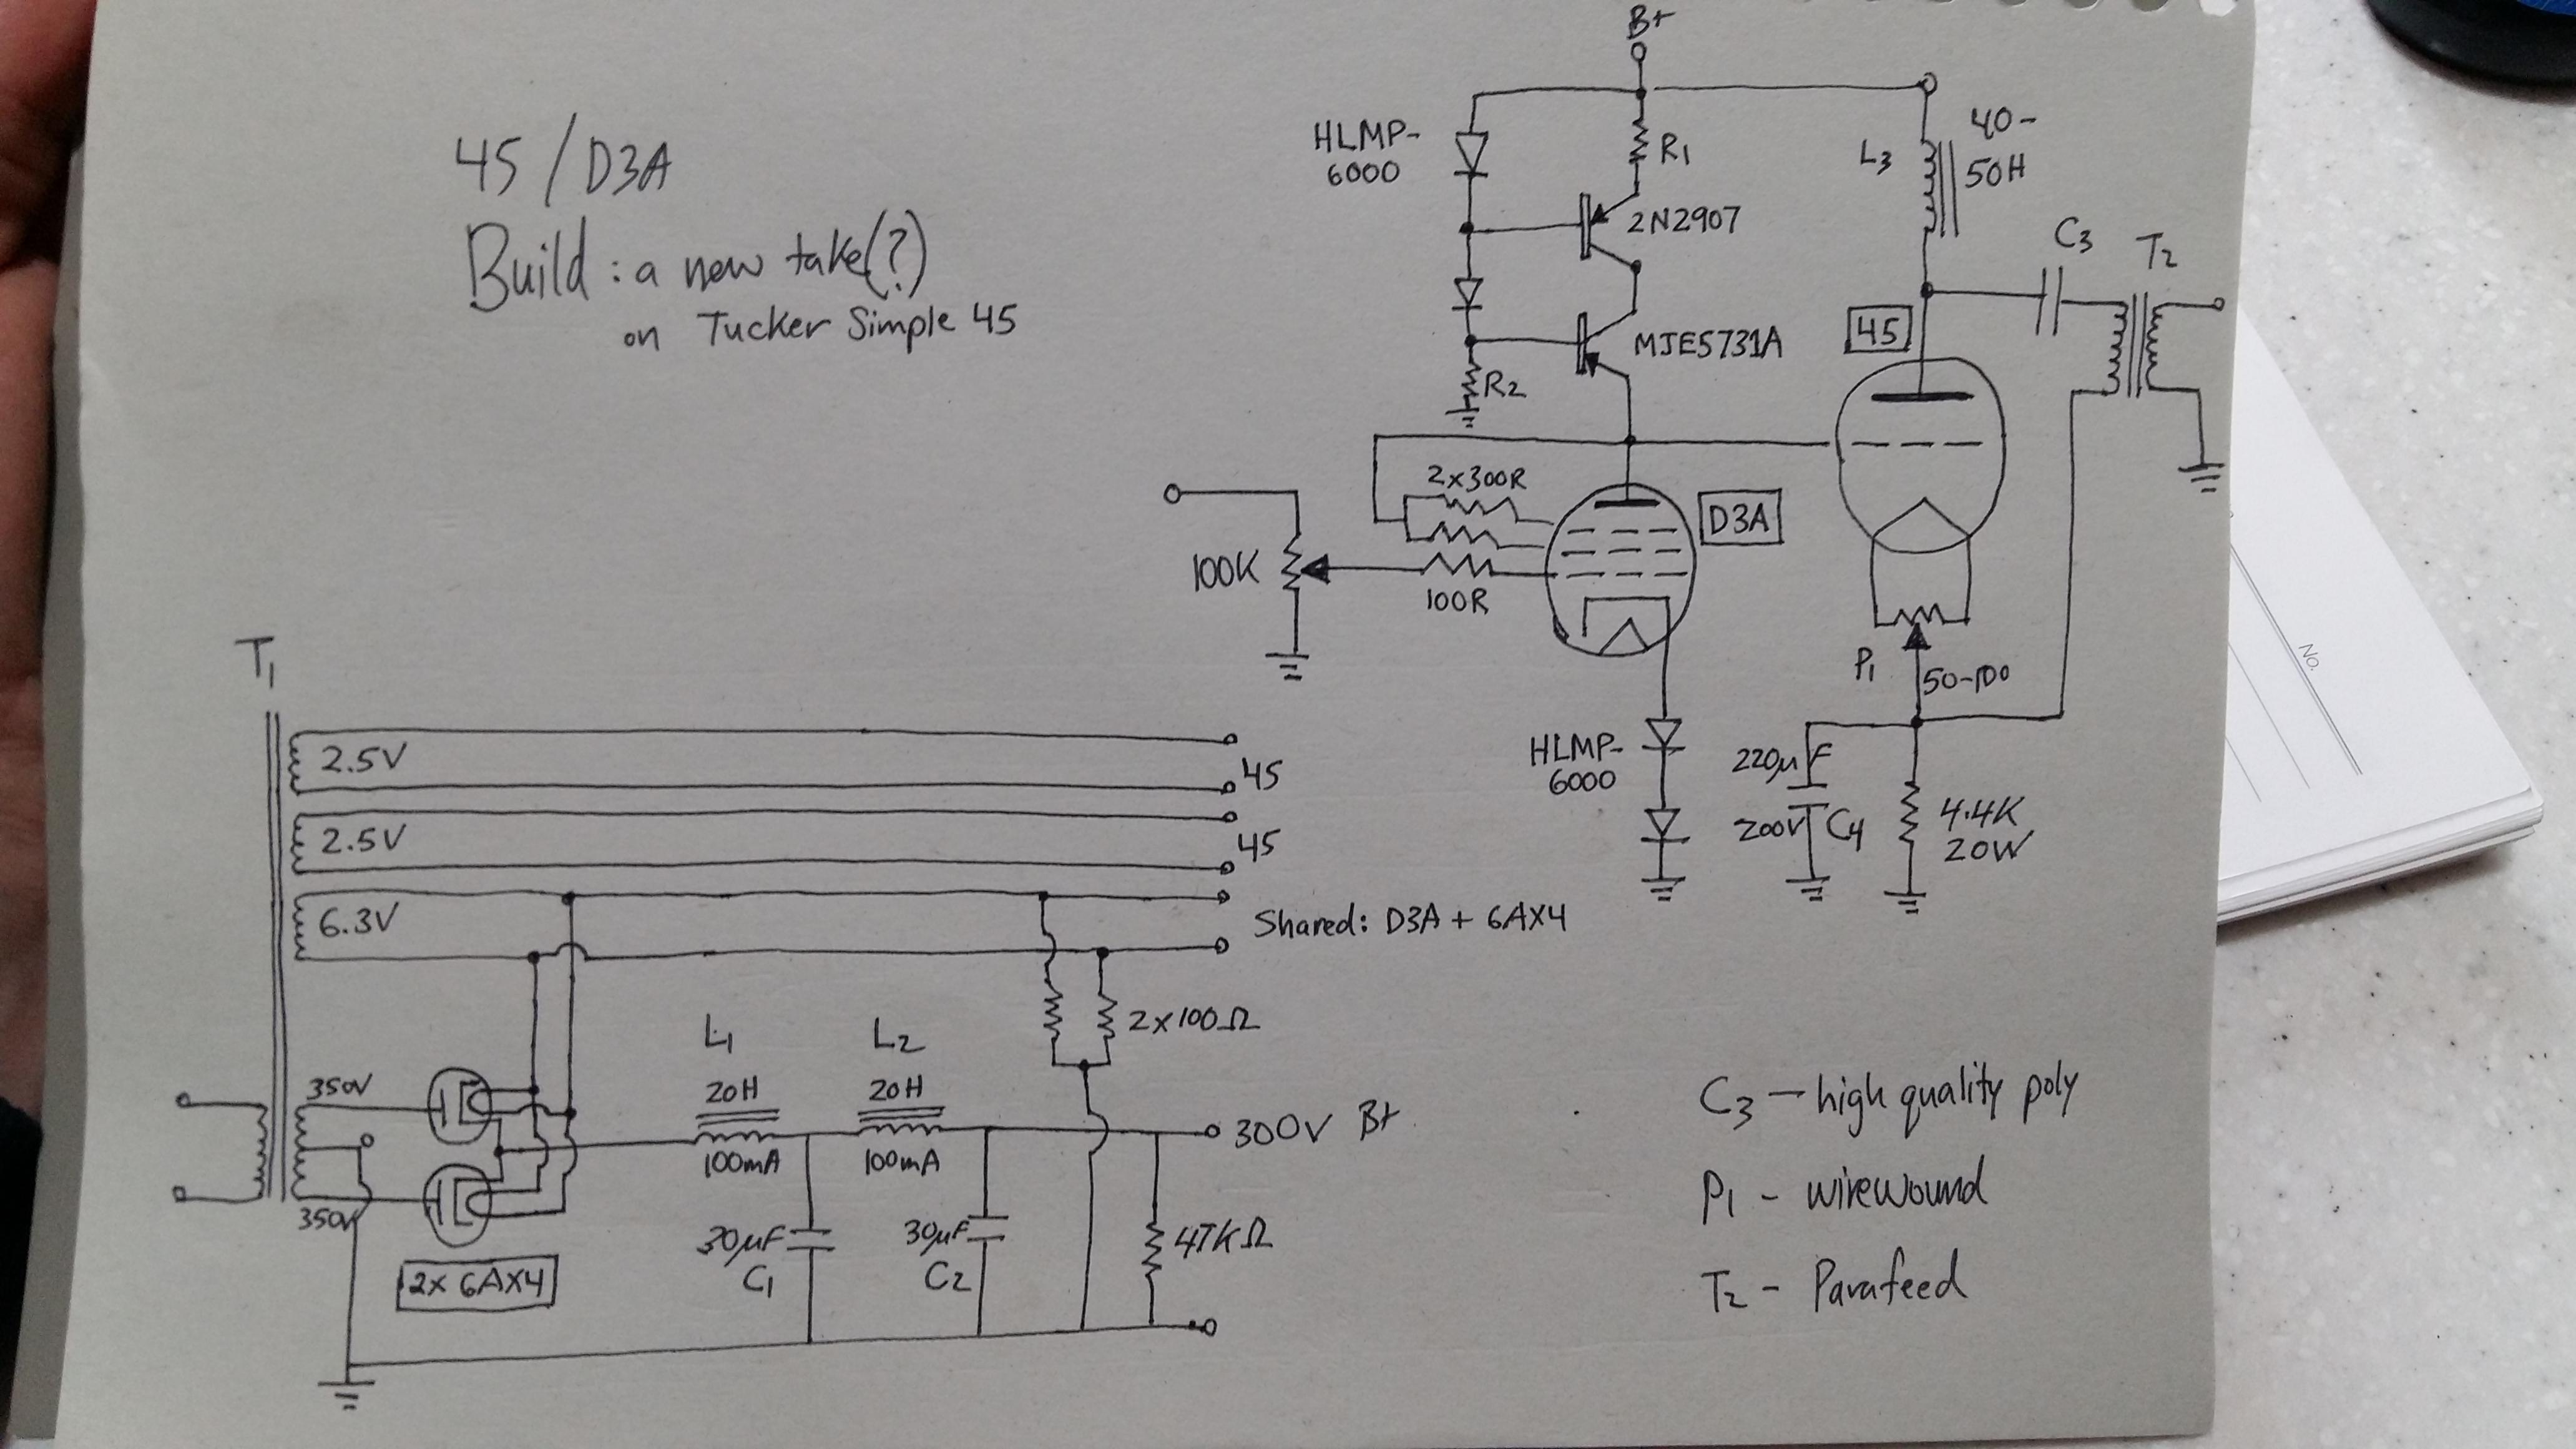 45 / D3A
Build: a new take(?)
on Tucker Simple 45
B+
HLMP-
6000
R1
2N2907
MJE5731A
R2
L3
40-
50H
C3
T2
45
2x300R
D3A
100K
100R
P1
50-100
HLMP-
6000
220µF
200V C4
4.4K
20W
T1
2.5V
45
2.5V
45
6.3V
Shared: D3A + 6AX4
2x100Ω
L1
20H
100mA
L2
20H
100mA
350V
350V
2x 6AX4
300V B+
30µF
C1
30µF
C2
47KΩ
C3 - high quality poly
P1 - wirewound
T2 - Parafeed
No.